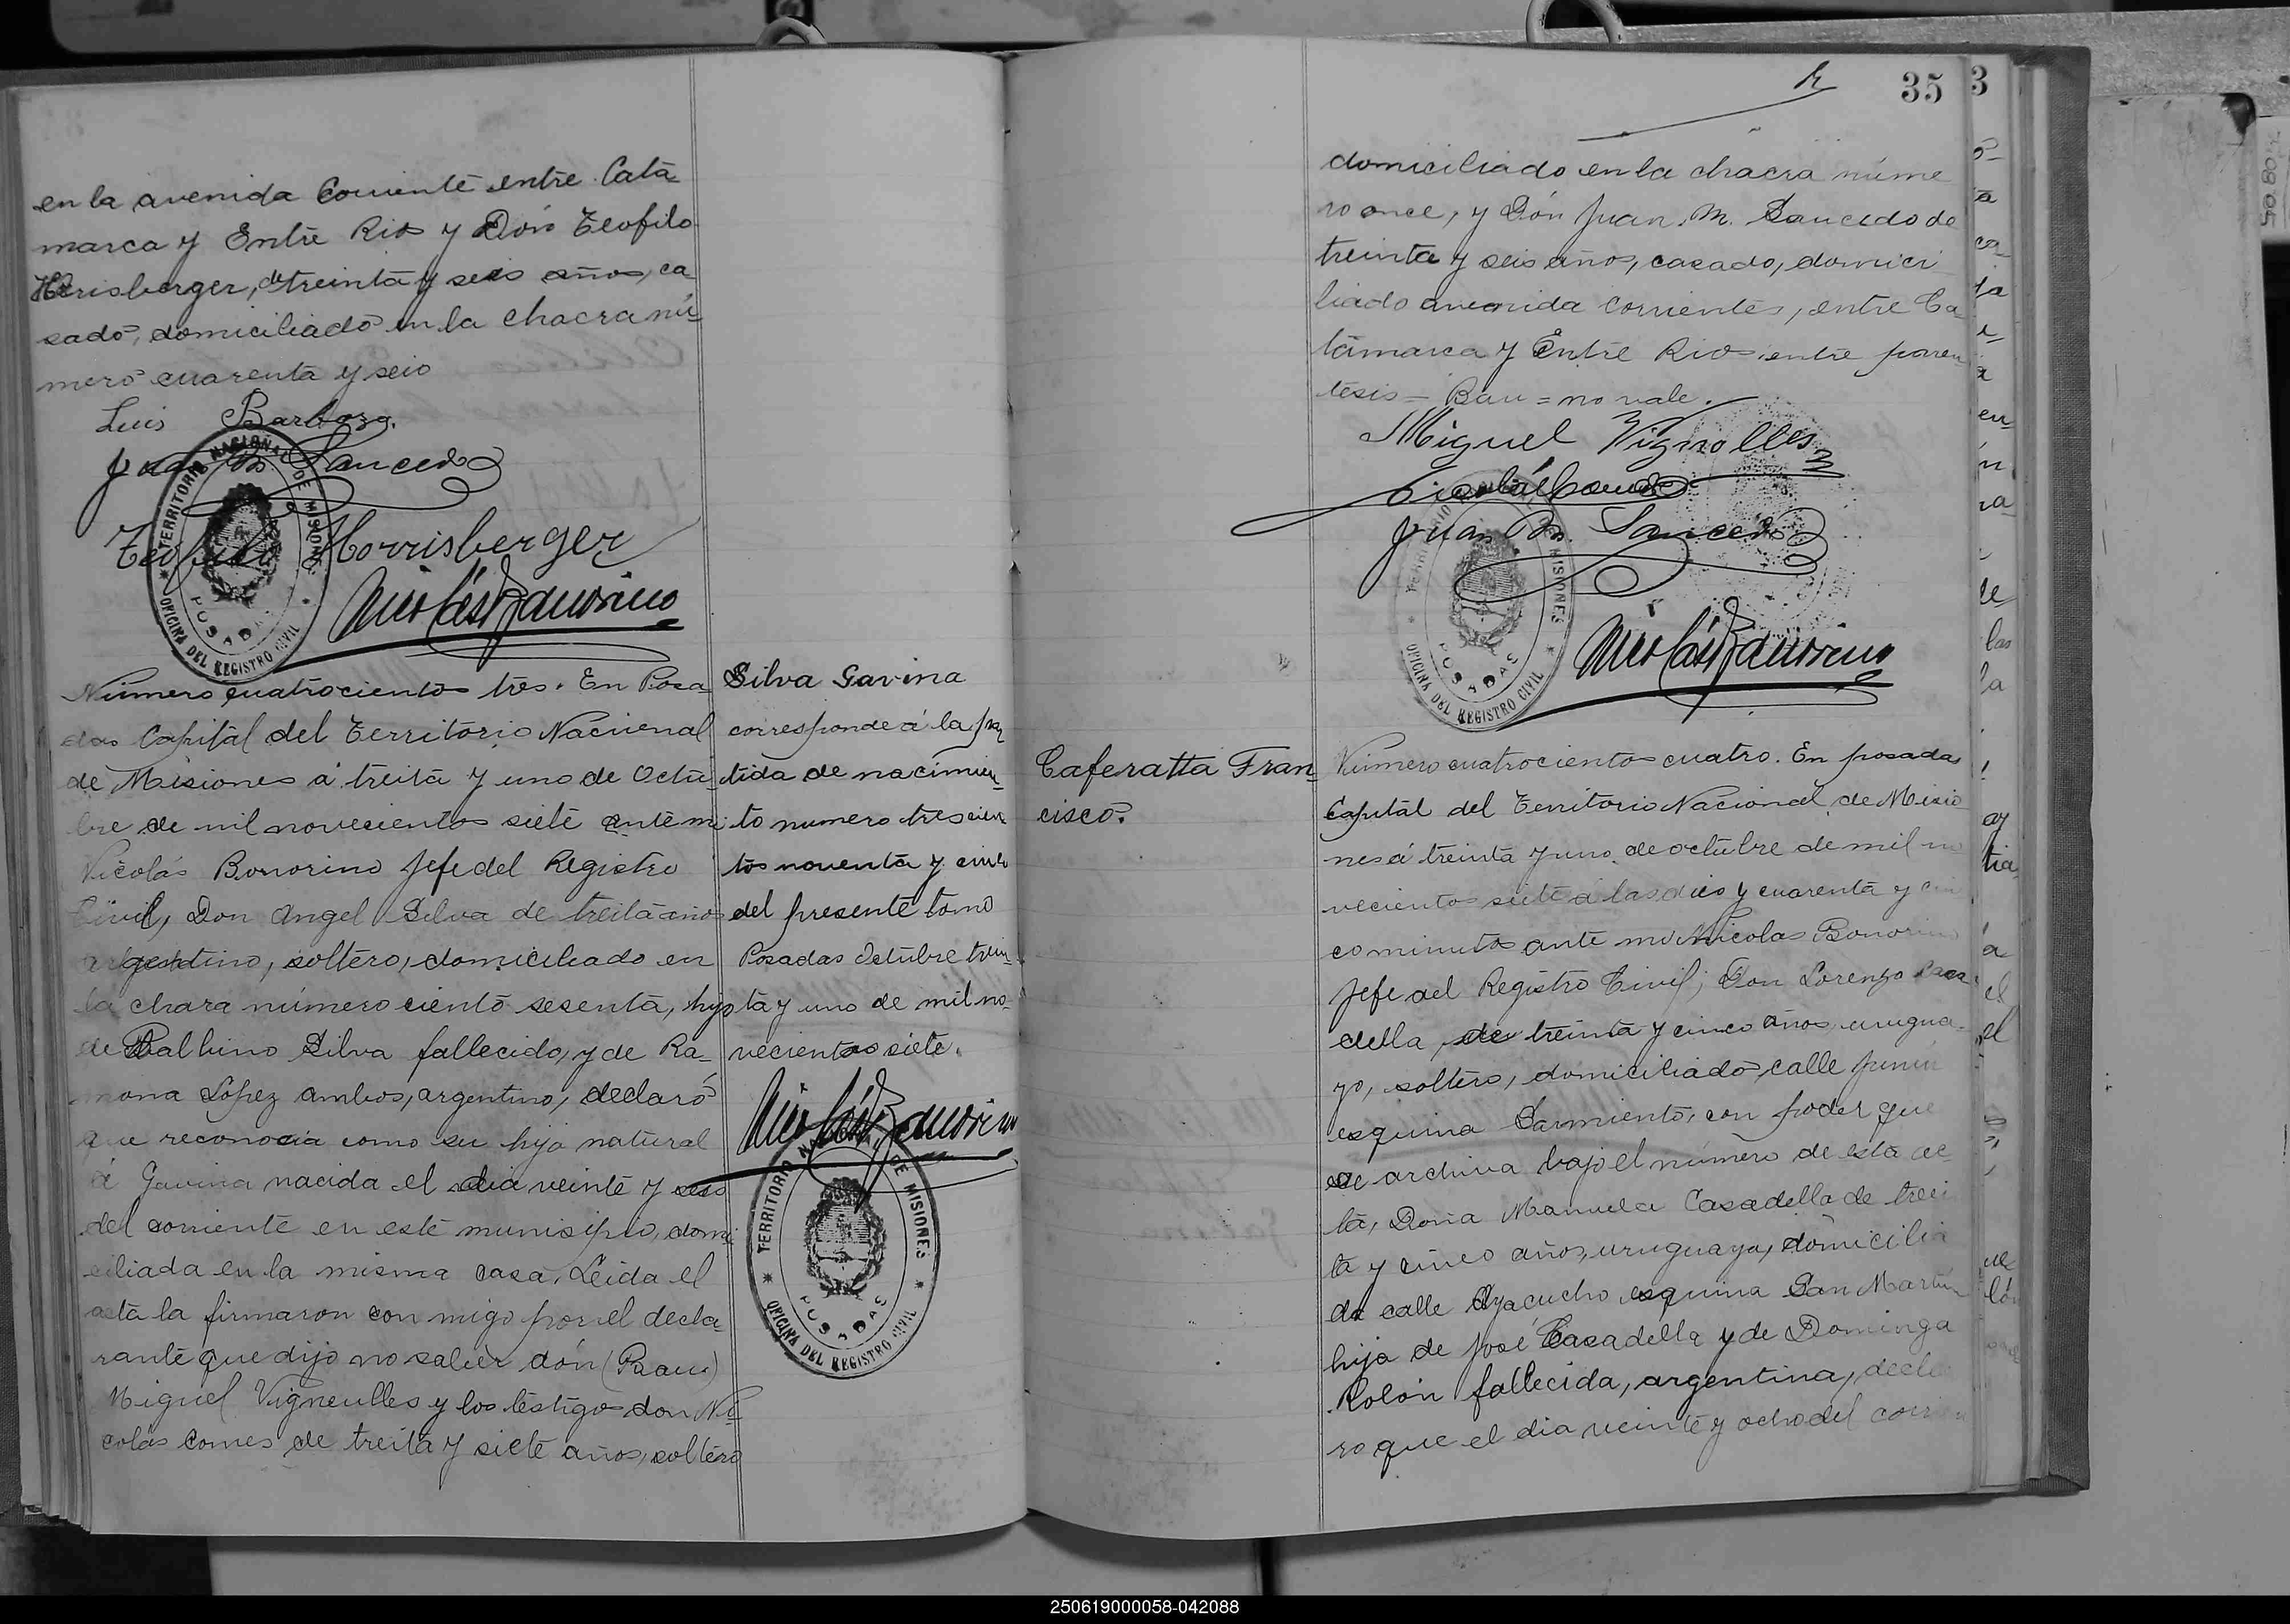 en la avenida Corriente entre Cata
marca y Entre Rios y Don Teofilo
Herisberger, de treinta y seis años, ca
sado, domiciliado en la chacra nú
mero cuarenta y seis
Luis Barboza.
Juan Bn. Saucedo
Teofilo Horrisberger
Nicolás Bonorino
TERRITORIO NACIONAL DE MISIONES
POSADAS
OFICINA DEL REGISTRO CIVIL
Número cuatrocientos tres. En Posa
das Capital del Territorio Nacional
de Misiones á treita y uno de Octu
bre de mil novecientos siete ante mi
Nicolás Bonorino Jefe del Registro
Civil, Don Angel Silva de treita años
argentino, soltero, domiciliado en
la chara número ciento sesenta, hijo
de Balbino Silva fallecido, y de Ra-
mona López ambos, argentino, declaró
que reconocia como su hija natural
á Gavina nacida el dia veinte y seis
del corriente en este munisipio, domi
ciliada en la misma casa. Leida el
acta la firmaron con migo por el decla-
rante que dijo no saber dón (Bau)
Miguel Vigneulles y los testigos don Ni
colás Comes de treita y siete años, soltero
Silva Gavina
corresponde á la par
tida de nacimien
to numero trescien
tos noventa y cinco
del presente tomo
Posadas Octubre trein
ta y uno de mil no-
vecientos siete.
Nicolás Bonorino
TERRITORIO NACIONAL DE MISIONES
POSADAS
OFICINA DEL REGISTRO CIVIL
35
3
domiciliado en la chacra núme
ro once, y Dón Juan M. Saucedo de
treinta y seis años, casado, domici
liado avenida corrientes, entre Ca-
tamarca y Entre Rios, entre paren
tesis = Bau = no vale.
Miguel Vignolles
Juan Bn. Saucedo
Nicolás Bonorino
MISIONES
POSADAS
OFICINA DEL REGISTRO CIVIL
Caferatta Fran
cisco.
Número cuatrocientos cuatro. En posadas
Capital del Territorio Nacional de Misio
nes á treinta y uno de octubre de mil no
vecientos siete á las dies y cuarenta y cin
co minutos ante mi Nicolas Bonorino
Jefe del Registro Civil; Don Lorenzo Casa
della, de treinta y cinco años, urugua-
yo, soltero, domiciliado, calle Junin
esquina Sarmiento, con poder que
se archiva bajo el número de esta ac
ta, Doña Manuela Casadella de trei
ta y cinco años, uruguaya, domicilia
da calle Ayacucho esquina San Martin
hija de José Casadella y de Dominga
Rolón fallecida, argentina, decla
ro que el dia veinte y ocho del corrien
250619000058-042088